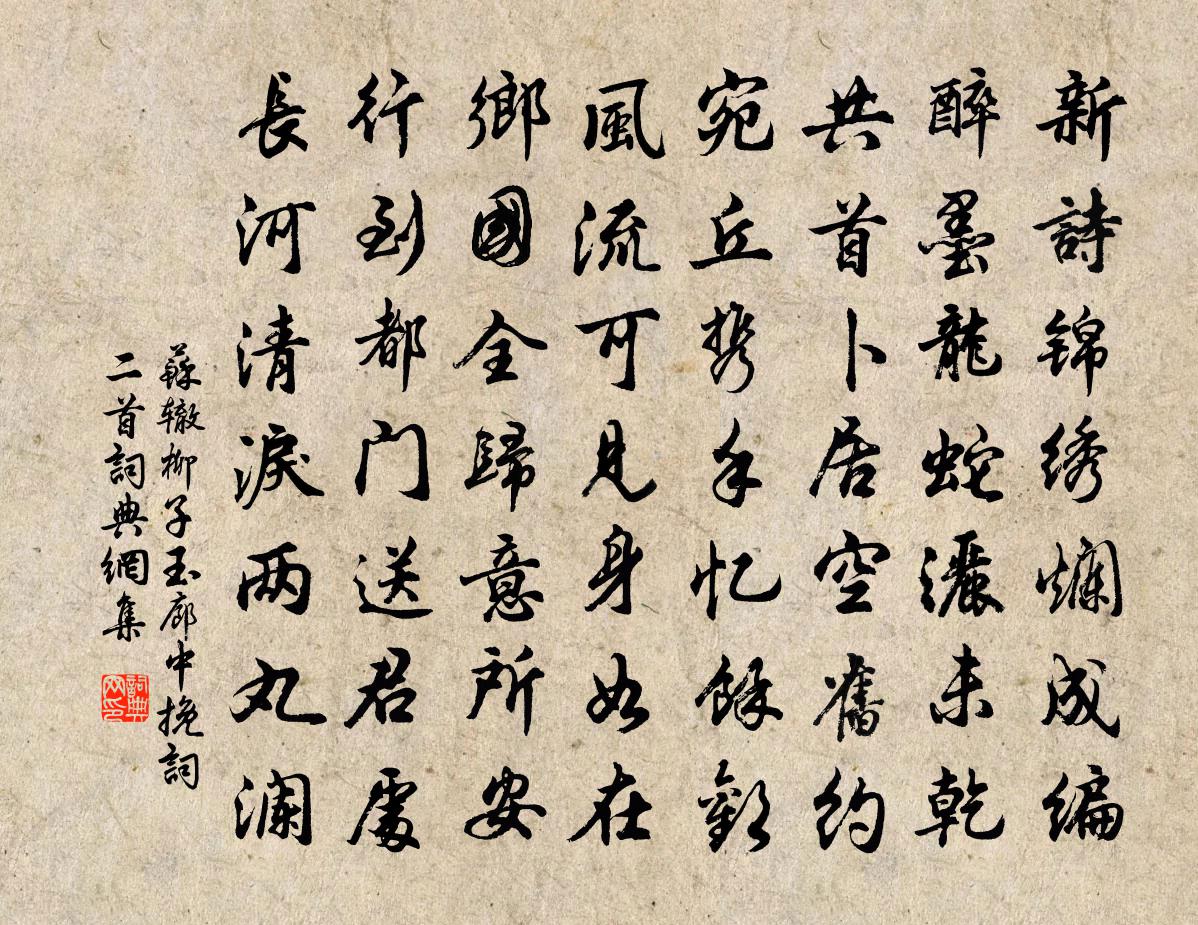 新詩锦绣爛成编
醉墨龍蛇灑未乾
共首卜居空舊约
宛丘携手忆餘歡
風流可見身如在
鄉國全歸意所安
行到都门送君處
長河清淚两丸澜
蘇辙柳子玉廊中挽詞
二首詞典網集
詞典网印